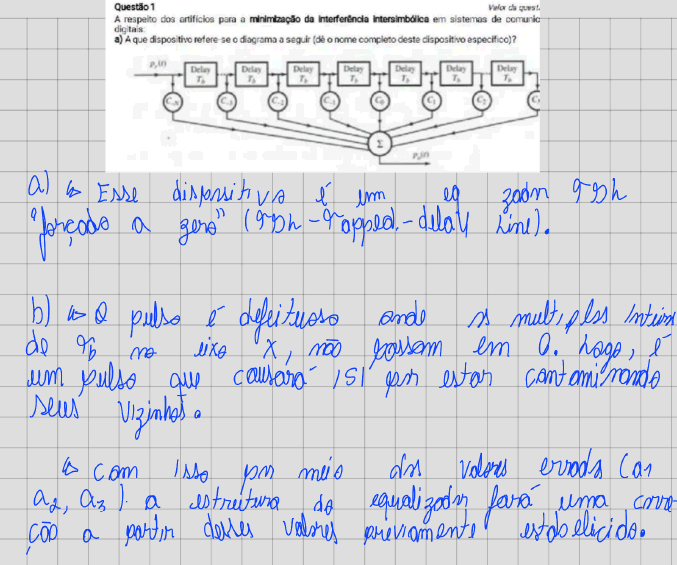 Questão 1
Valor da quest
A respeito dos artifícios para a minimização da interferência intersimbólica em sistemas de comunic
digitais:
a) A que dispositivo refere-se o diagrama a seguir (dê o nome completo deste dispositivo específico)?
Pr(t) Delay Tb Delay Tb Delay Tb Delay Tb Delay Tb Delay Tb Delay Tb
C-N C-3 C-2 C-1 C0 C1 C2
Σ
P0(t)
a) ↳ Esse dispositivo é um eq zador TDL
"forçado a zero" (TDL - Tapped - delay Line).
b) ↳ O pulso é defeituoso onde os multiplos inteiros
de Tb no eixo X, não passam em 0. Logo, é
um pulso que causará ISI por estar contaminando
seus vizinhos.
↳ Com isso por meio dos valores errados (a1
a2, a3). a estrutura do equalizador fará uma corre-
ção a partir desses valores previamente estabelicido.